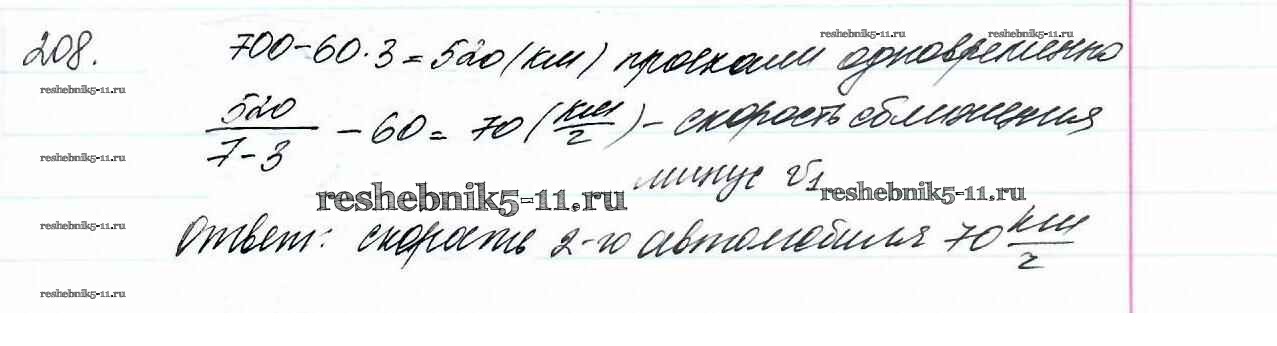 208. 700-60·3=520(км) проехали одновременно
520/(7-3) - 60 = 70 (км/г) - скорость сближения
минус v1
Ответ: скорость 2-го автомобиля 70 км/г
reshebnik5-11.ru
reshebnik5-11.ru
reshebnik5-11.ru
reshebnik5-11.ru
reshebnik5-11.ru
reshebnik5-11.ru
reshebnik5-11.ru
reshebnik5-11.ru